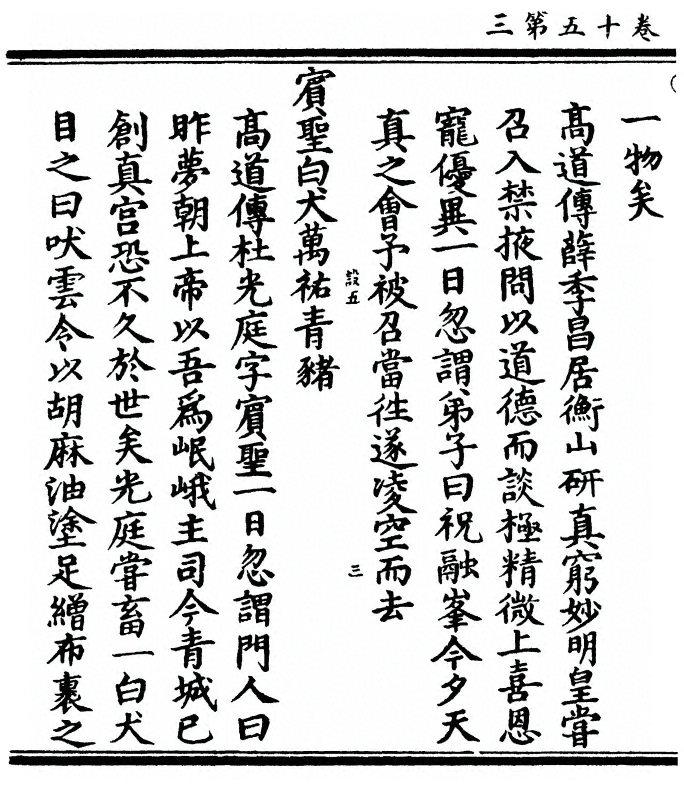 三第五十卷
一物矣
高道傳薛季昌居衡山研真窮妙明皇甞
召入禁掖問以道德而談極精微上喜恩
寵優異一日忽謂弟子曰祝融峯今夕天
真之會予被召當徃遂凌空而去
三
設五
賓聖白犬萬祐青豬
高道傳杜光庭字賓聖一日忽謂門人曰
昨夢朝上帝以吾爲岷峨主司今青城已
創真宫恐不久於世矣光庭甞畜一白犬
目之曰吠雲令以胡麻油塗足繒布裹之